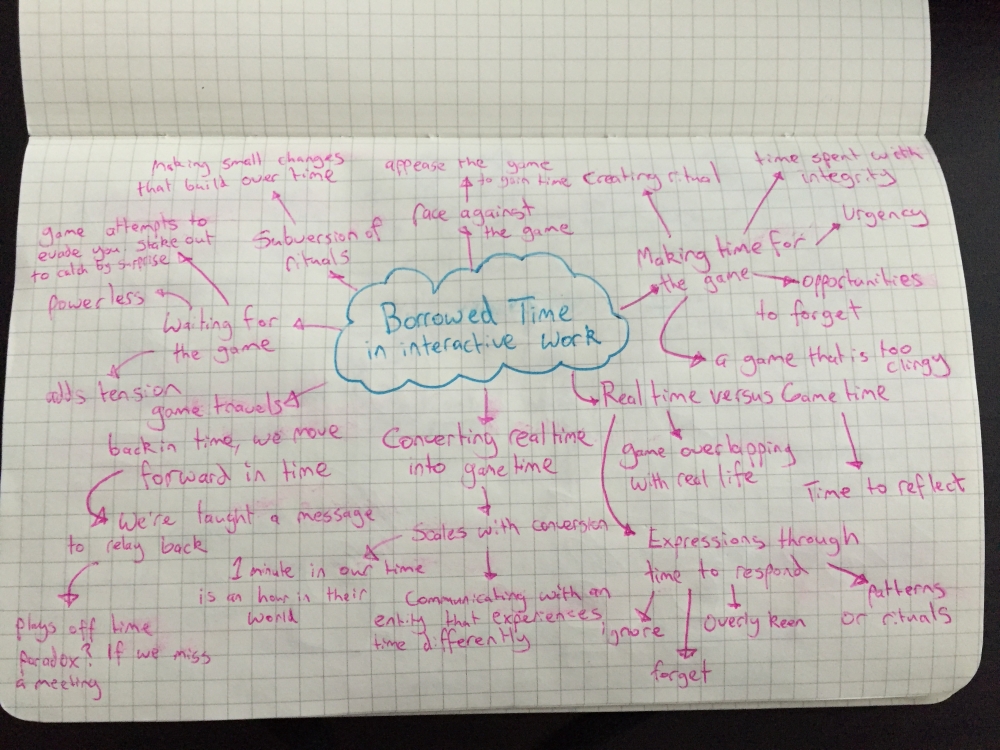 Borrowed Time
in interactive work
Making small changes
that build over time
Subversion of
rituals
appease the game
to gain time
race against
the game
Creating ritual
time spent with
integrity
Urgency
Making time for
the game
opportunities
to forget
a game that is too
clingy
game attempts to
evade you, stake out
to catch by surprise
powerless
Waiting for
the game
adds tension
game travels
back in time, we move
forward in time
We're taught a message
to relay back
plays off time
paradox? If we miss
a meeting
Converting real time
into game time
Scales with conversion
1 minute in our time
is an hour in their
world
Communicating with an
entity that experiences
time differently
Real time versus Game time
game overlapping
with real life
Time to reflect
Expressions through
time to respond
ignore
forget
Overly keen
patterns
or rituals